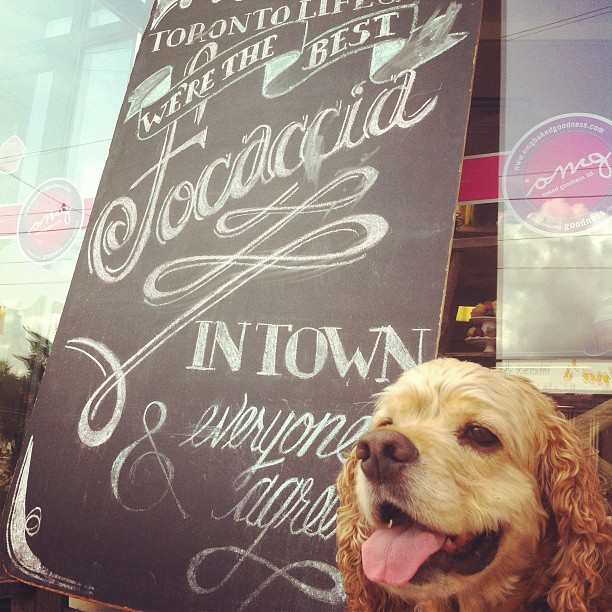 TORONTO LIFE
WE'RE THE BEST
Focaccia
IN TOWN
& everyone
agrees
www.omgbakedgoodness.com
omg
baked goodness ltd.
goodn
omg